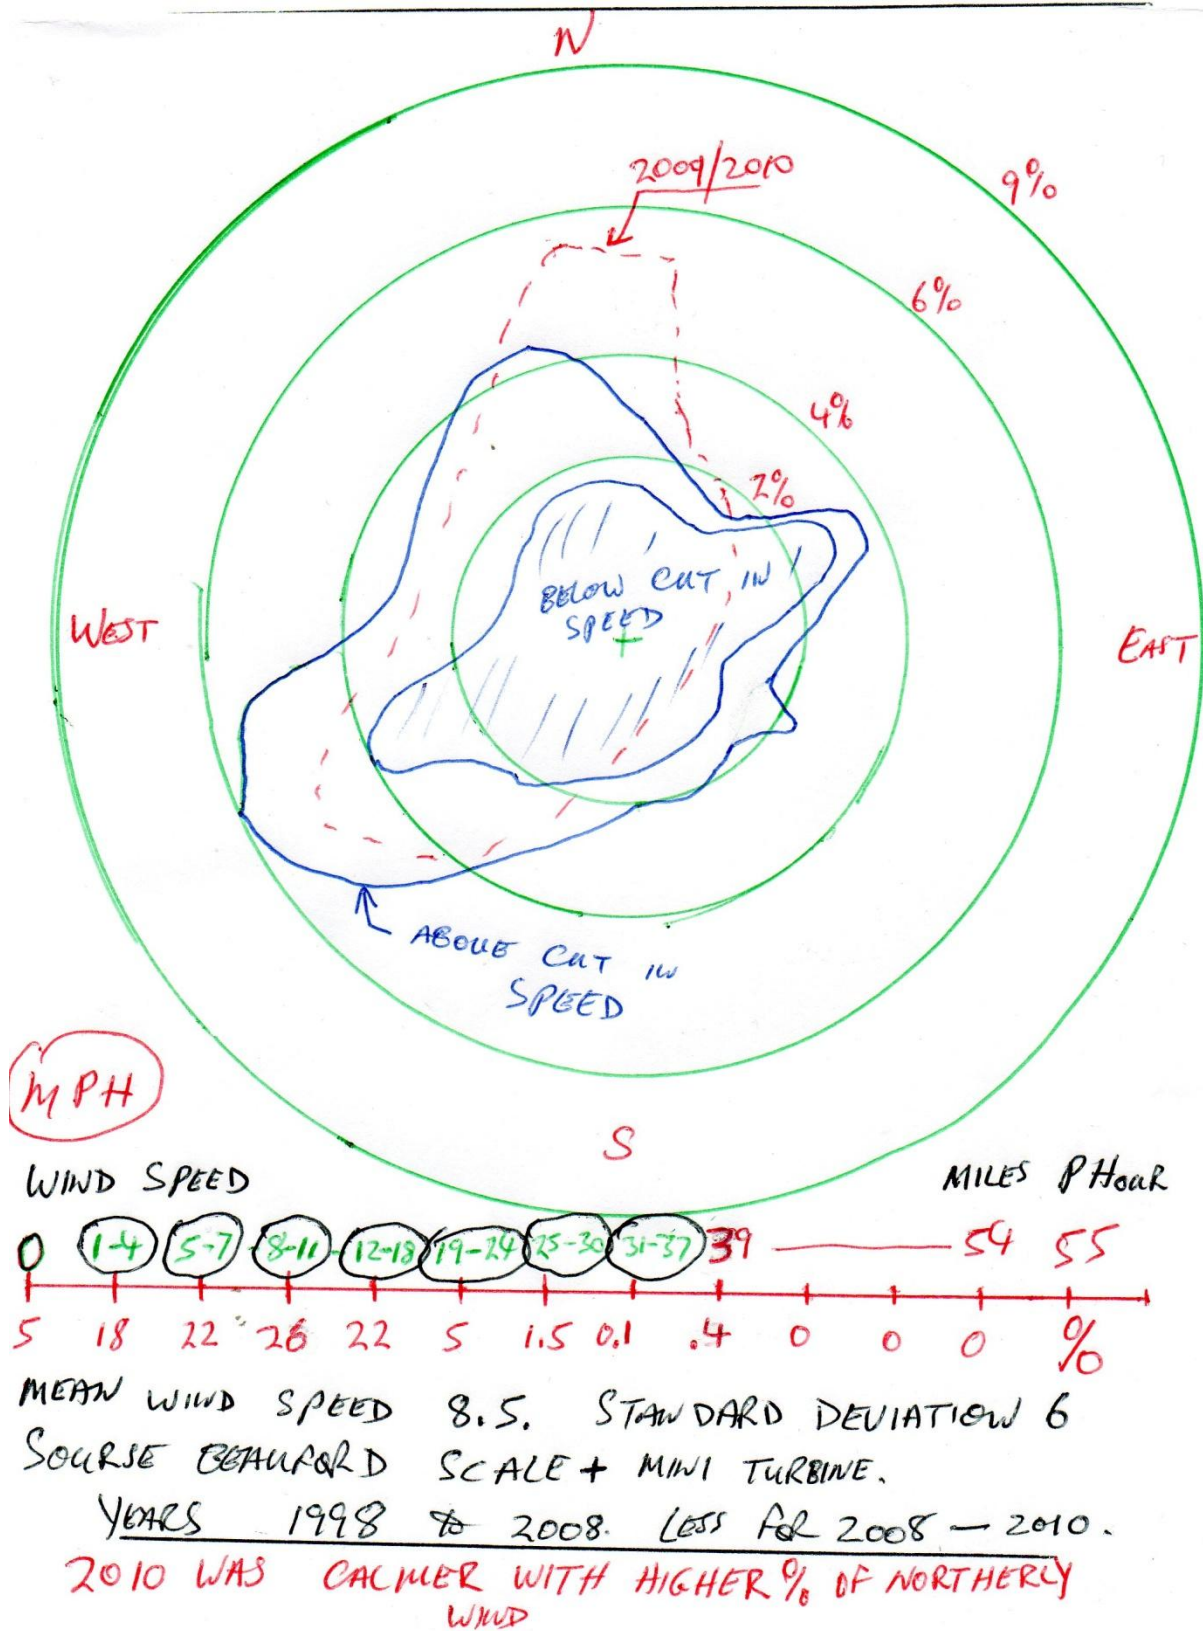 N
2009/2010
9%
6%
4%
2%
BELOW CUT IN
SPEED
WEST
EAST
ABOVE CUT IN
SPEED
MPH
S
WIND SPEED
MILES P HOUR
0 1-4 5-7 8-11 12-18 19-24 25-30 31-37 39 54 55
5 18 22 26 22 5 1.5 0.1 .4 0 0 0 %
MEAN WIND SPEED 8.5. STANDARD DEVIATION 6
SOURSE BEAUFORD SCALE + MINI TURBINE.
YEARS 1998 to 2008. LESS FOR 2008 — 2010.
2010 WAS CALMER WITH HIGHER % OF NORTHERLY
WIND